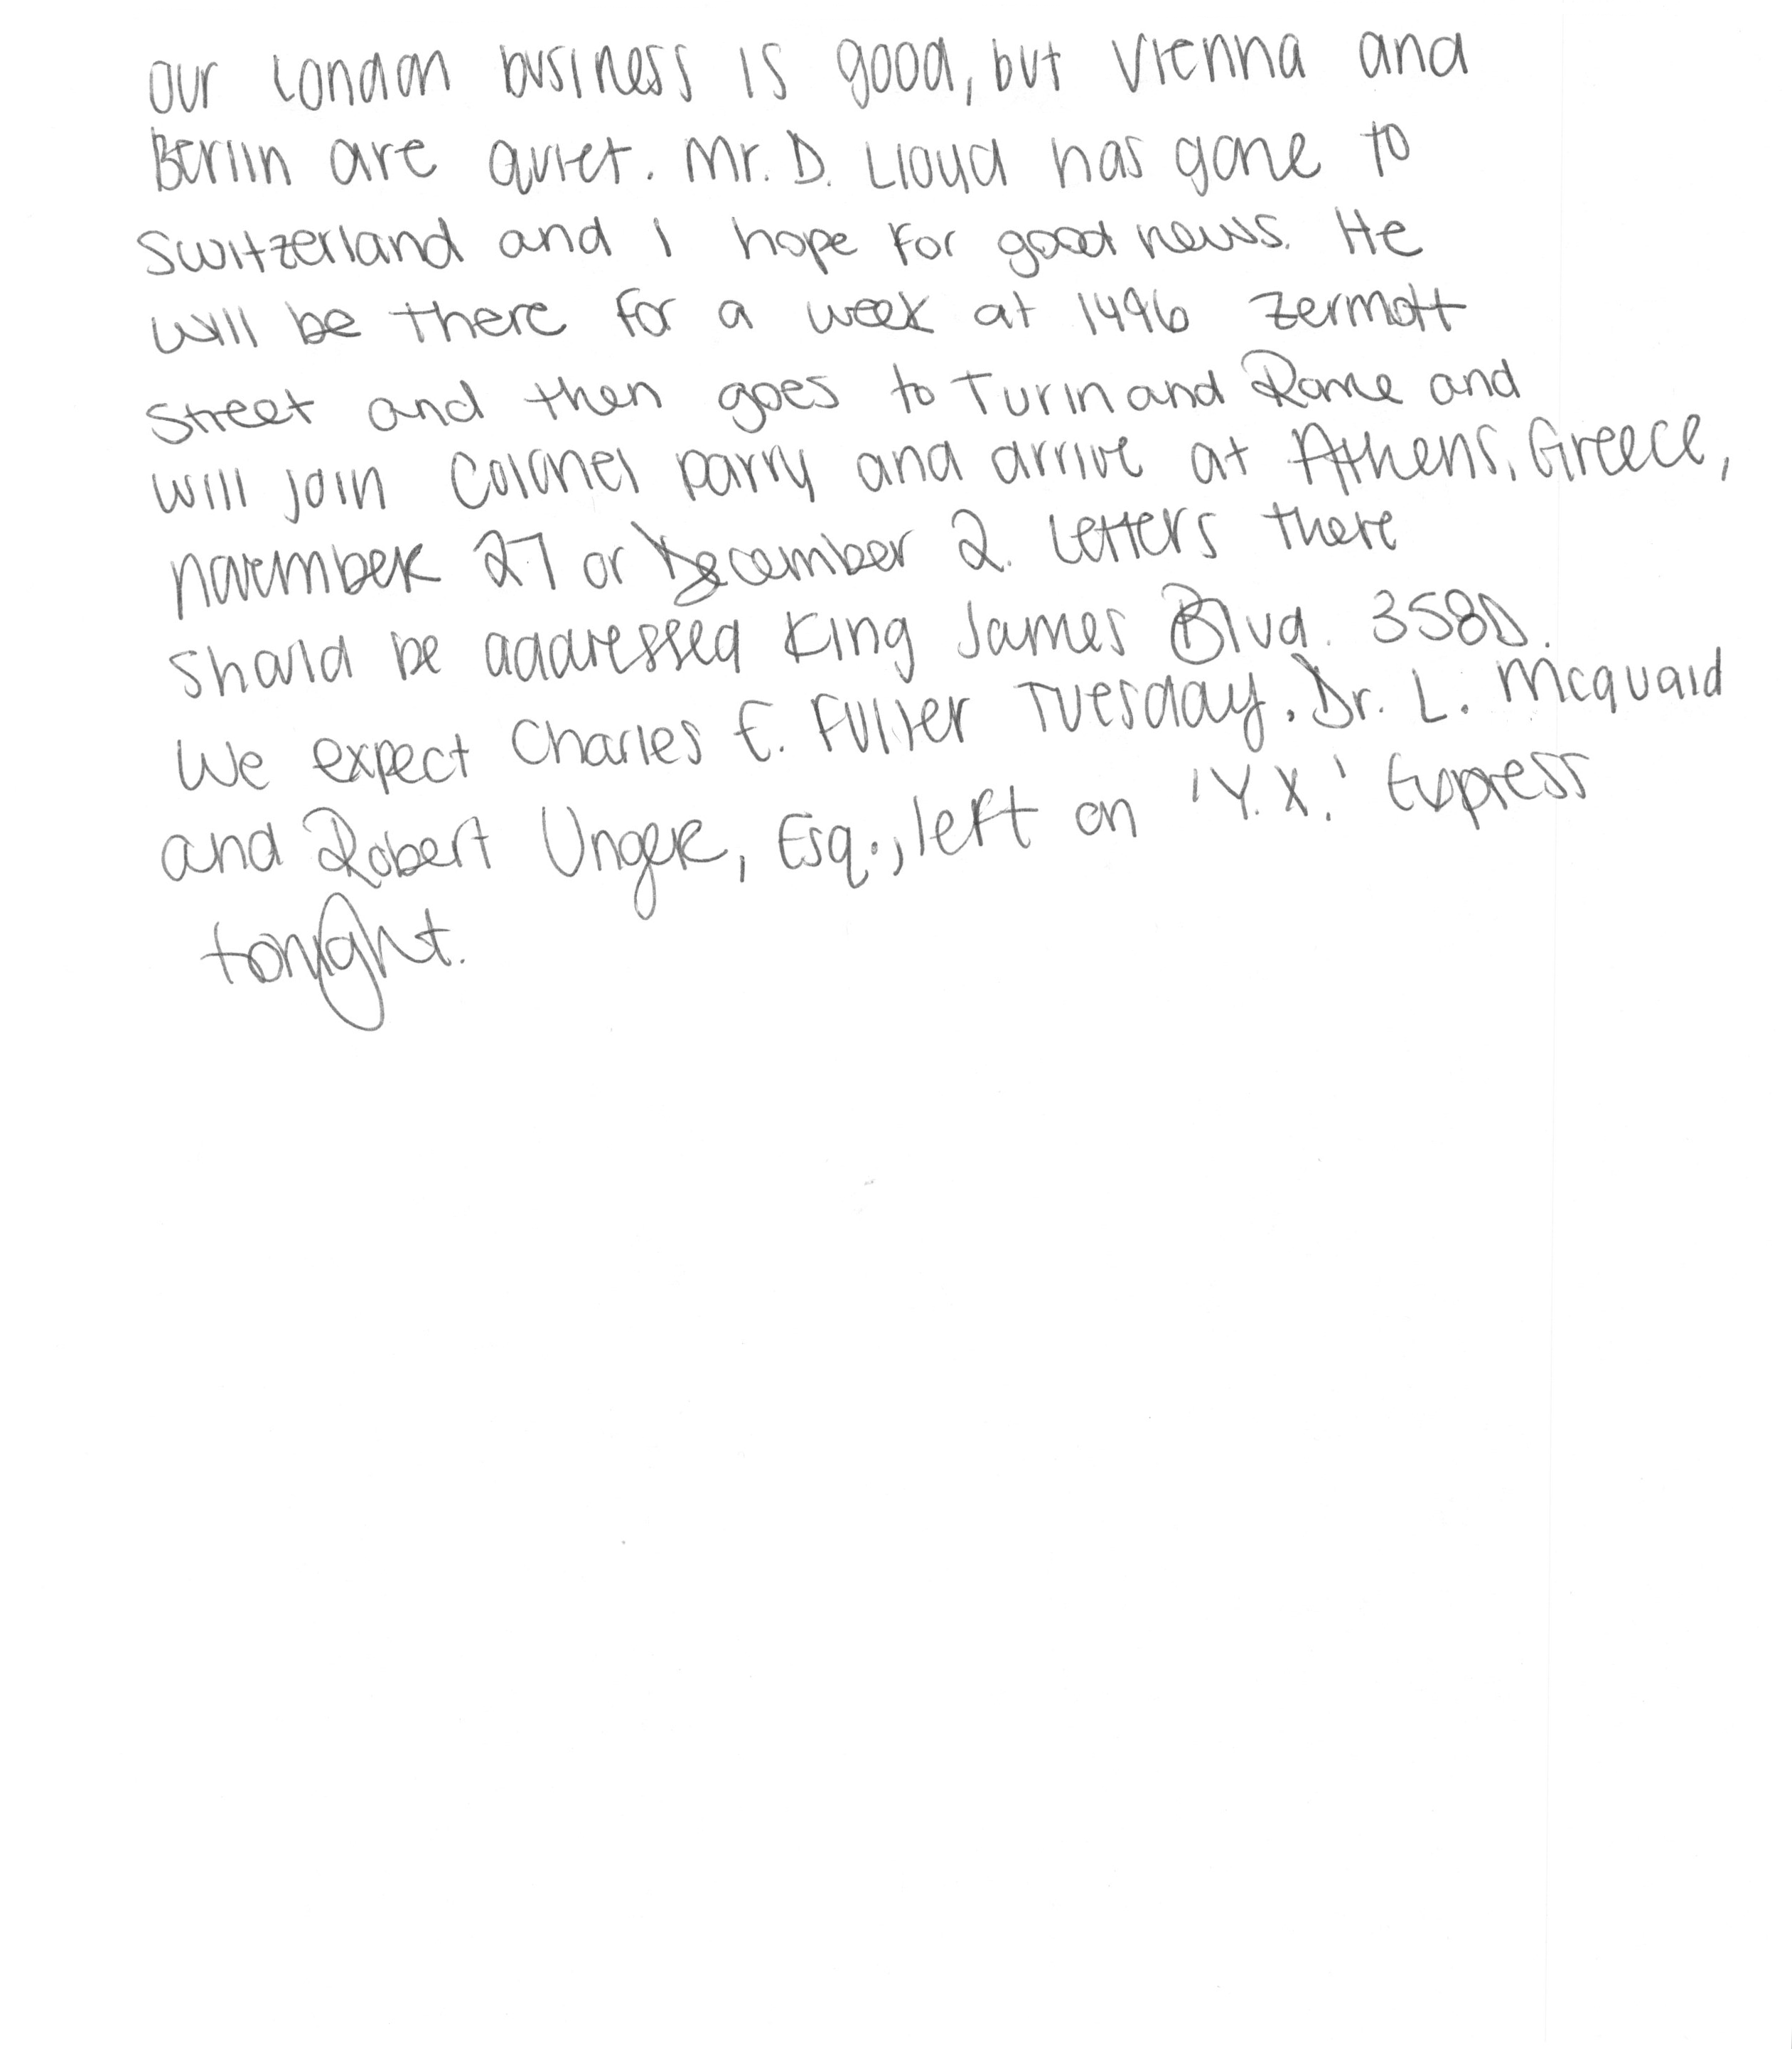 our London business is good, but Vienna and
Berlin are quiet. Mr. D. Lloyd has gone to
Switzerland and I hope for good news. He
will be there for a week at 1496 Zermott
Street and then goes to Turin and Rome and
will join Colonel Parry and arrive at Athens, Greece,
November 27 or December 2. Letters there
should be addressed King James Blvd. 3580.
We expect Charles E. Fuller Tuesday. Dr. L. McQuaid
and Robert Unger, Esq., left on 'Y.X.' Express
tonight.